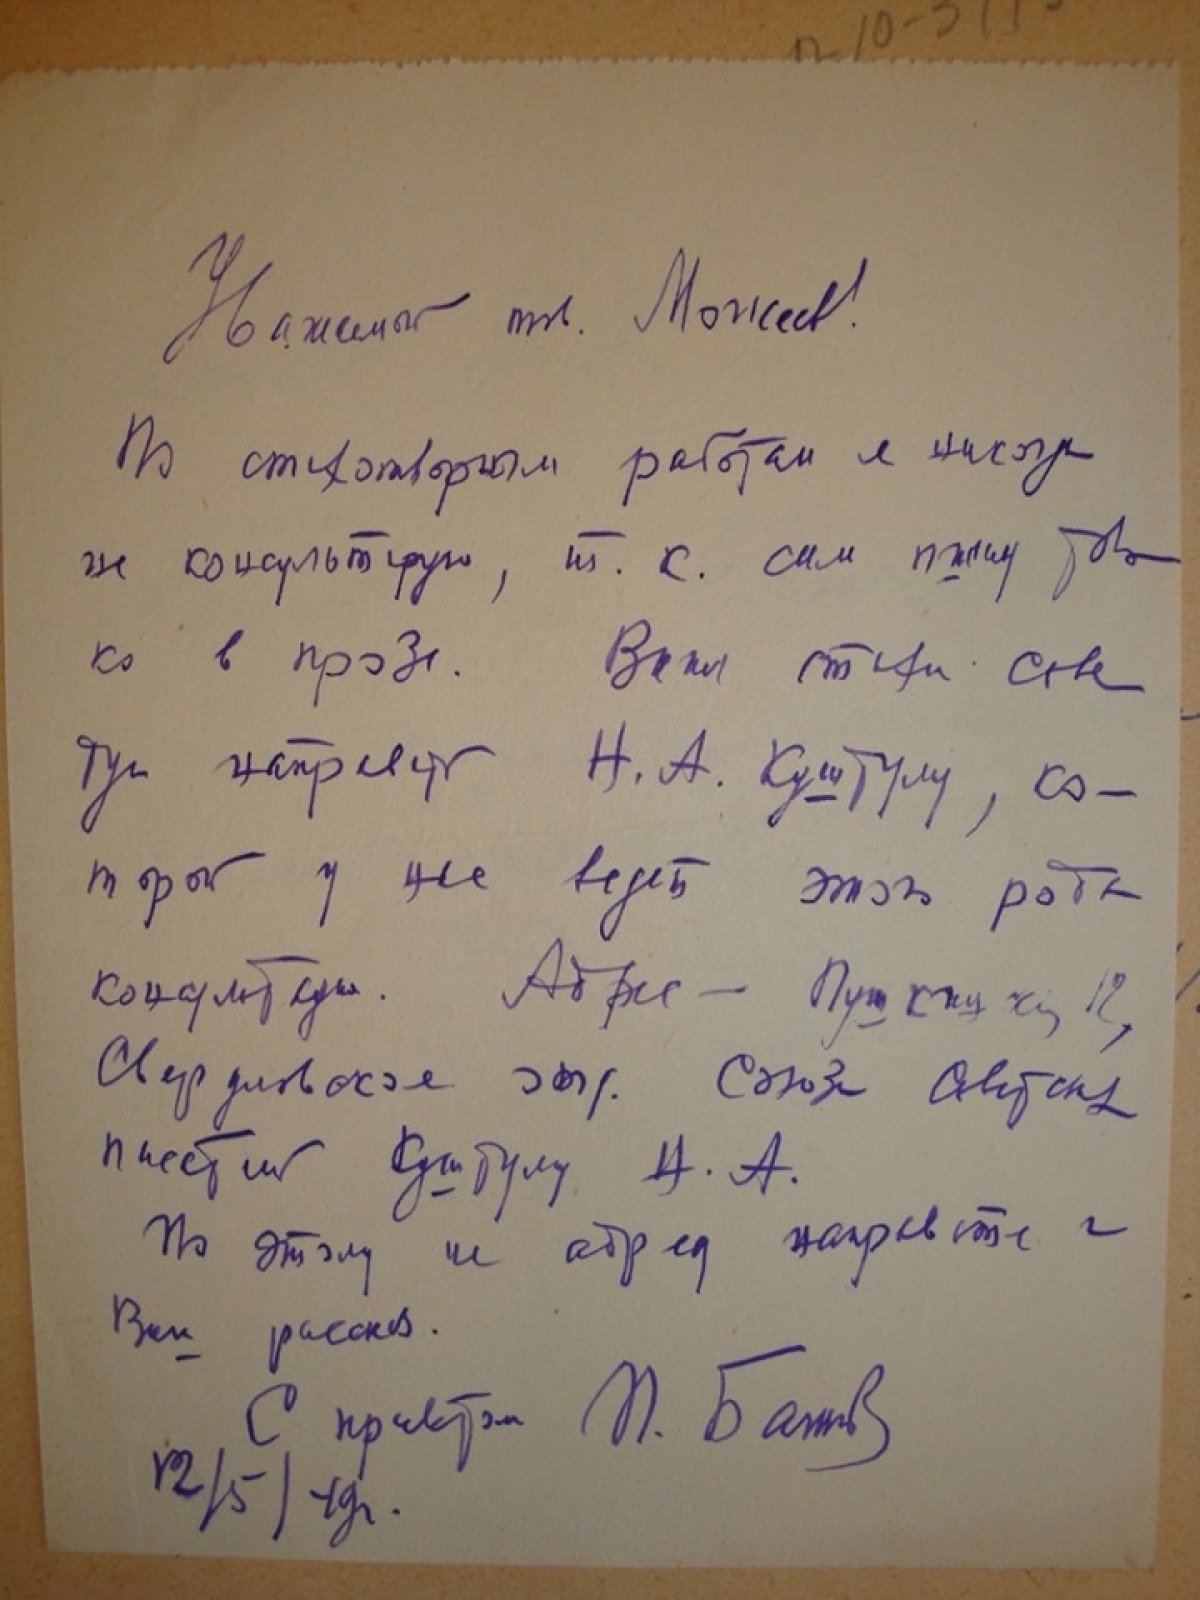 Уважаемый тов. Мокеев!
По стихотворным работам я никогда
не консультирую, т. к. сам пишу толь
ко в прозе. Ваши стихи сове
тую направить Н. А. Куштуму, ко-
торый у нас ведет этого рода
консультации. Адрес — Пушкинская, 12,
Свердловское отд. Союза Советских
писателей Куштуму Н. А.
По этому же адресу направьте и
Ваш рассказ.
С приветом П. Бажов
12/5/49г.